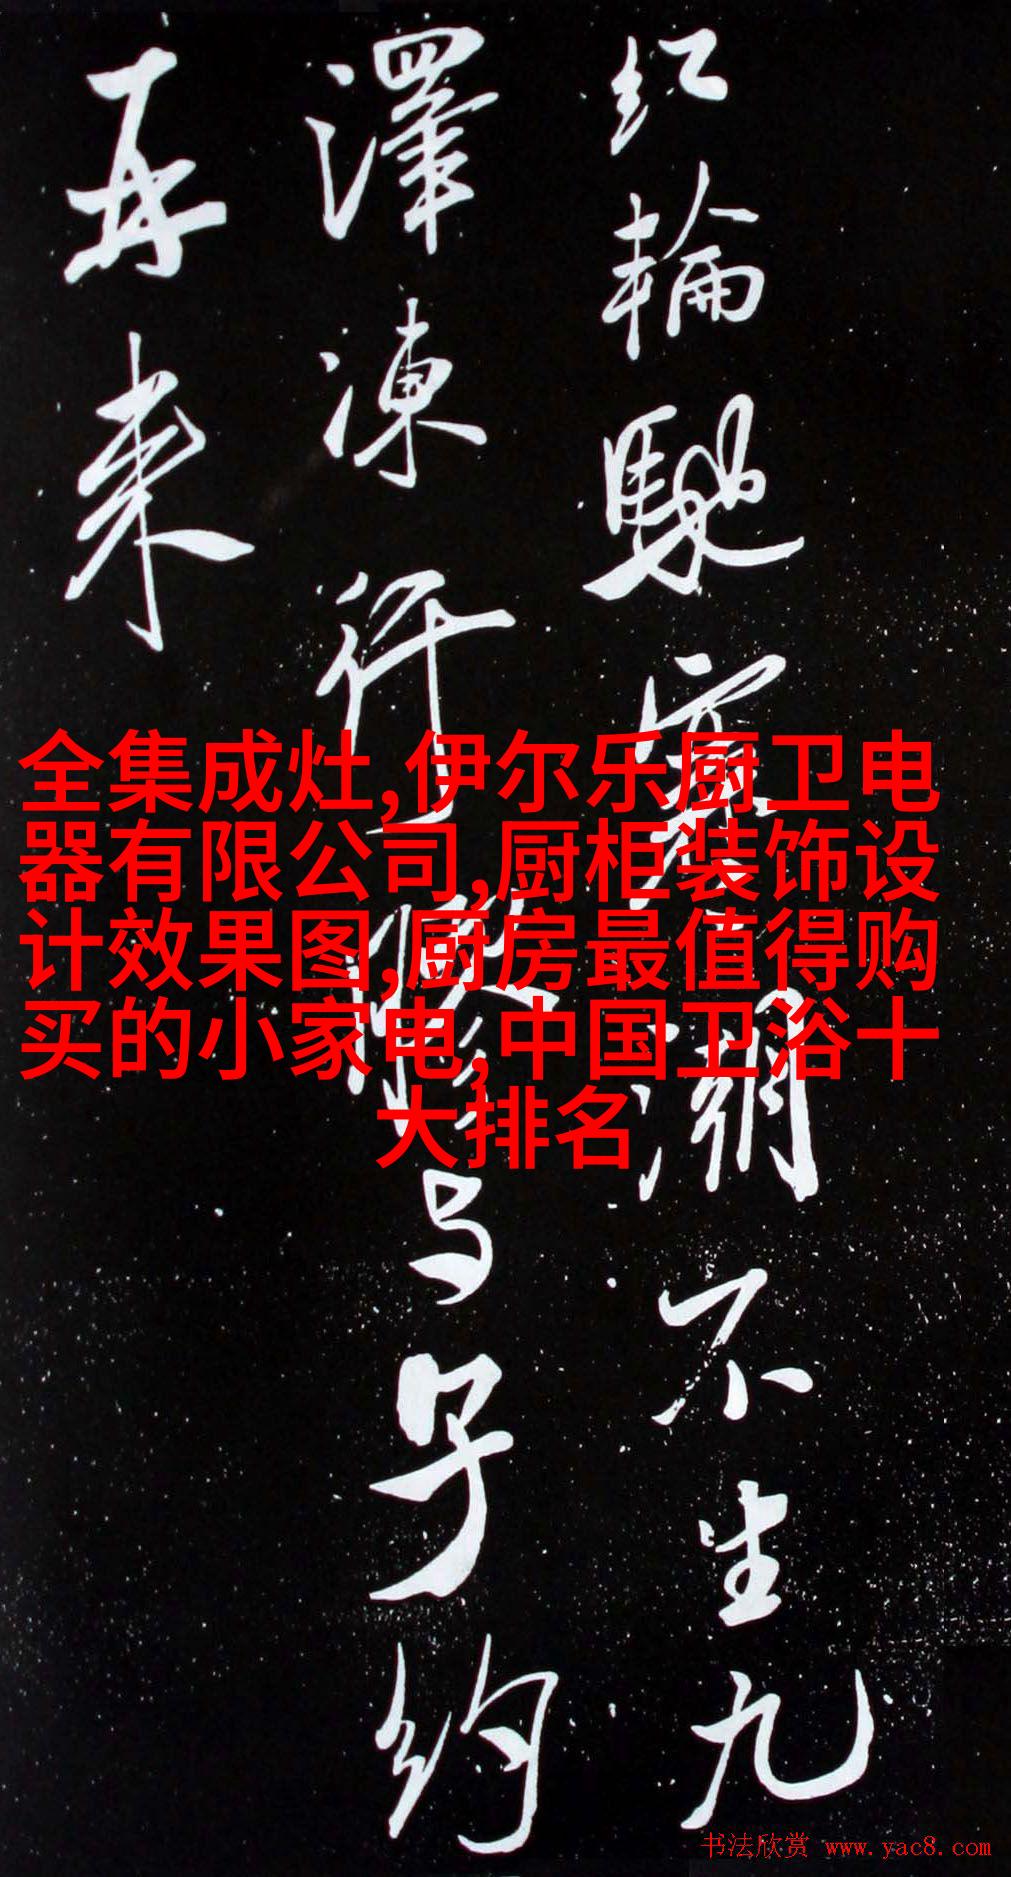 紅輪馳寒潮不生九
澤凍行与子約
再来
全集成灶,伊尔乐厨卫电
器有限公司,厨柜装饰设
计效果图,厨房最值得购
买的小家电,中国卫浴十
大排名
书法欣赏 www.yac8.com